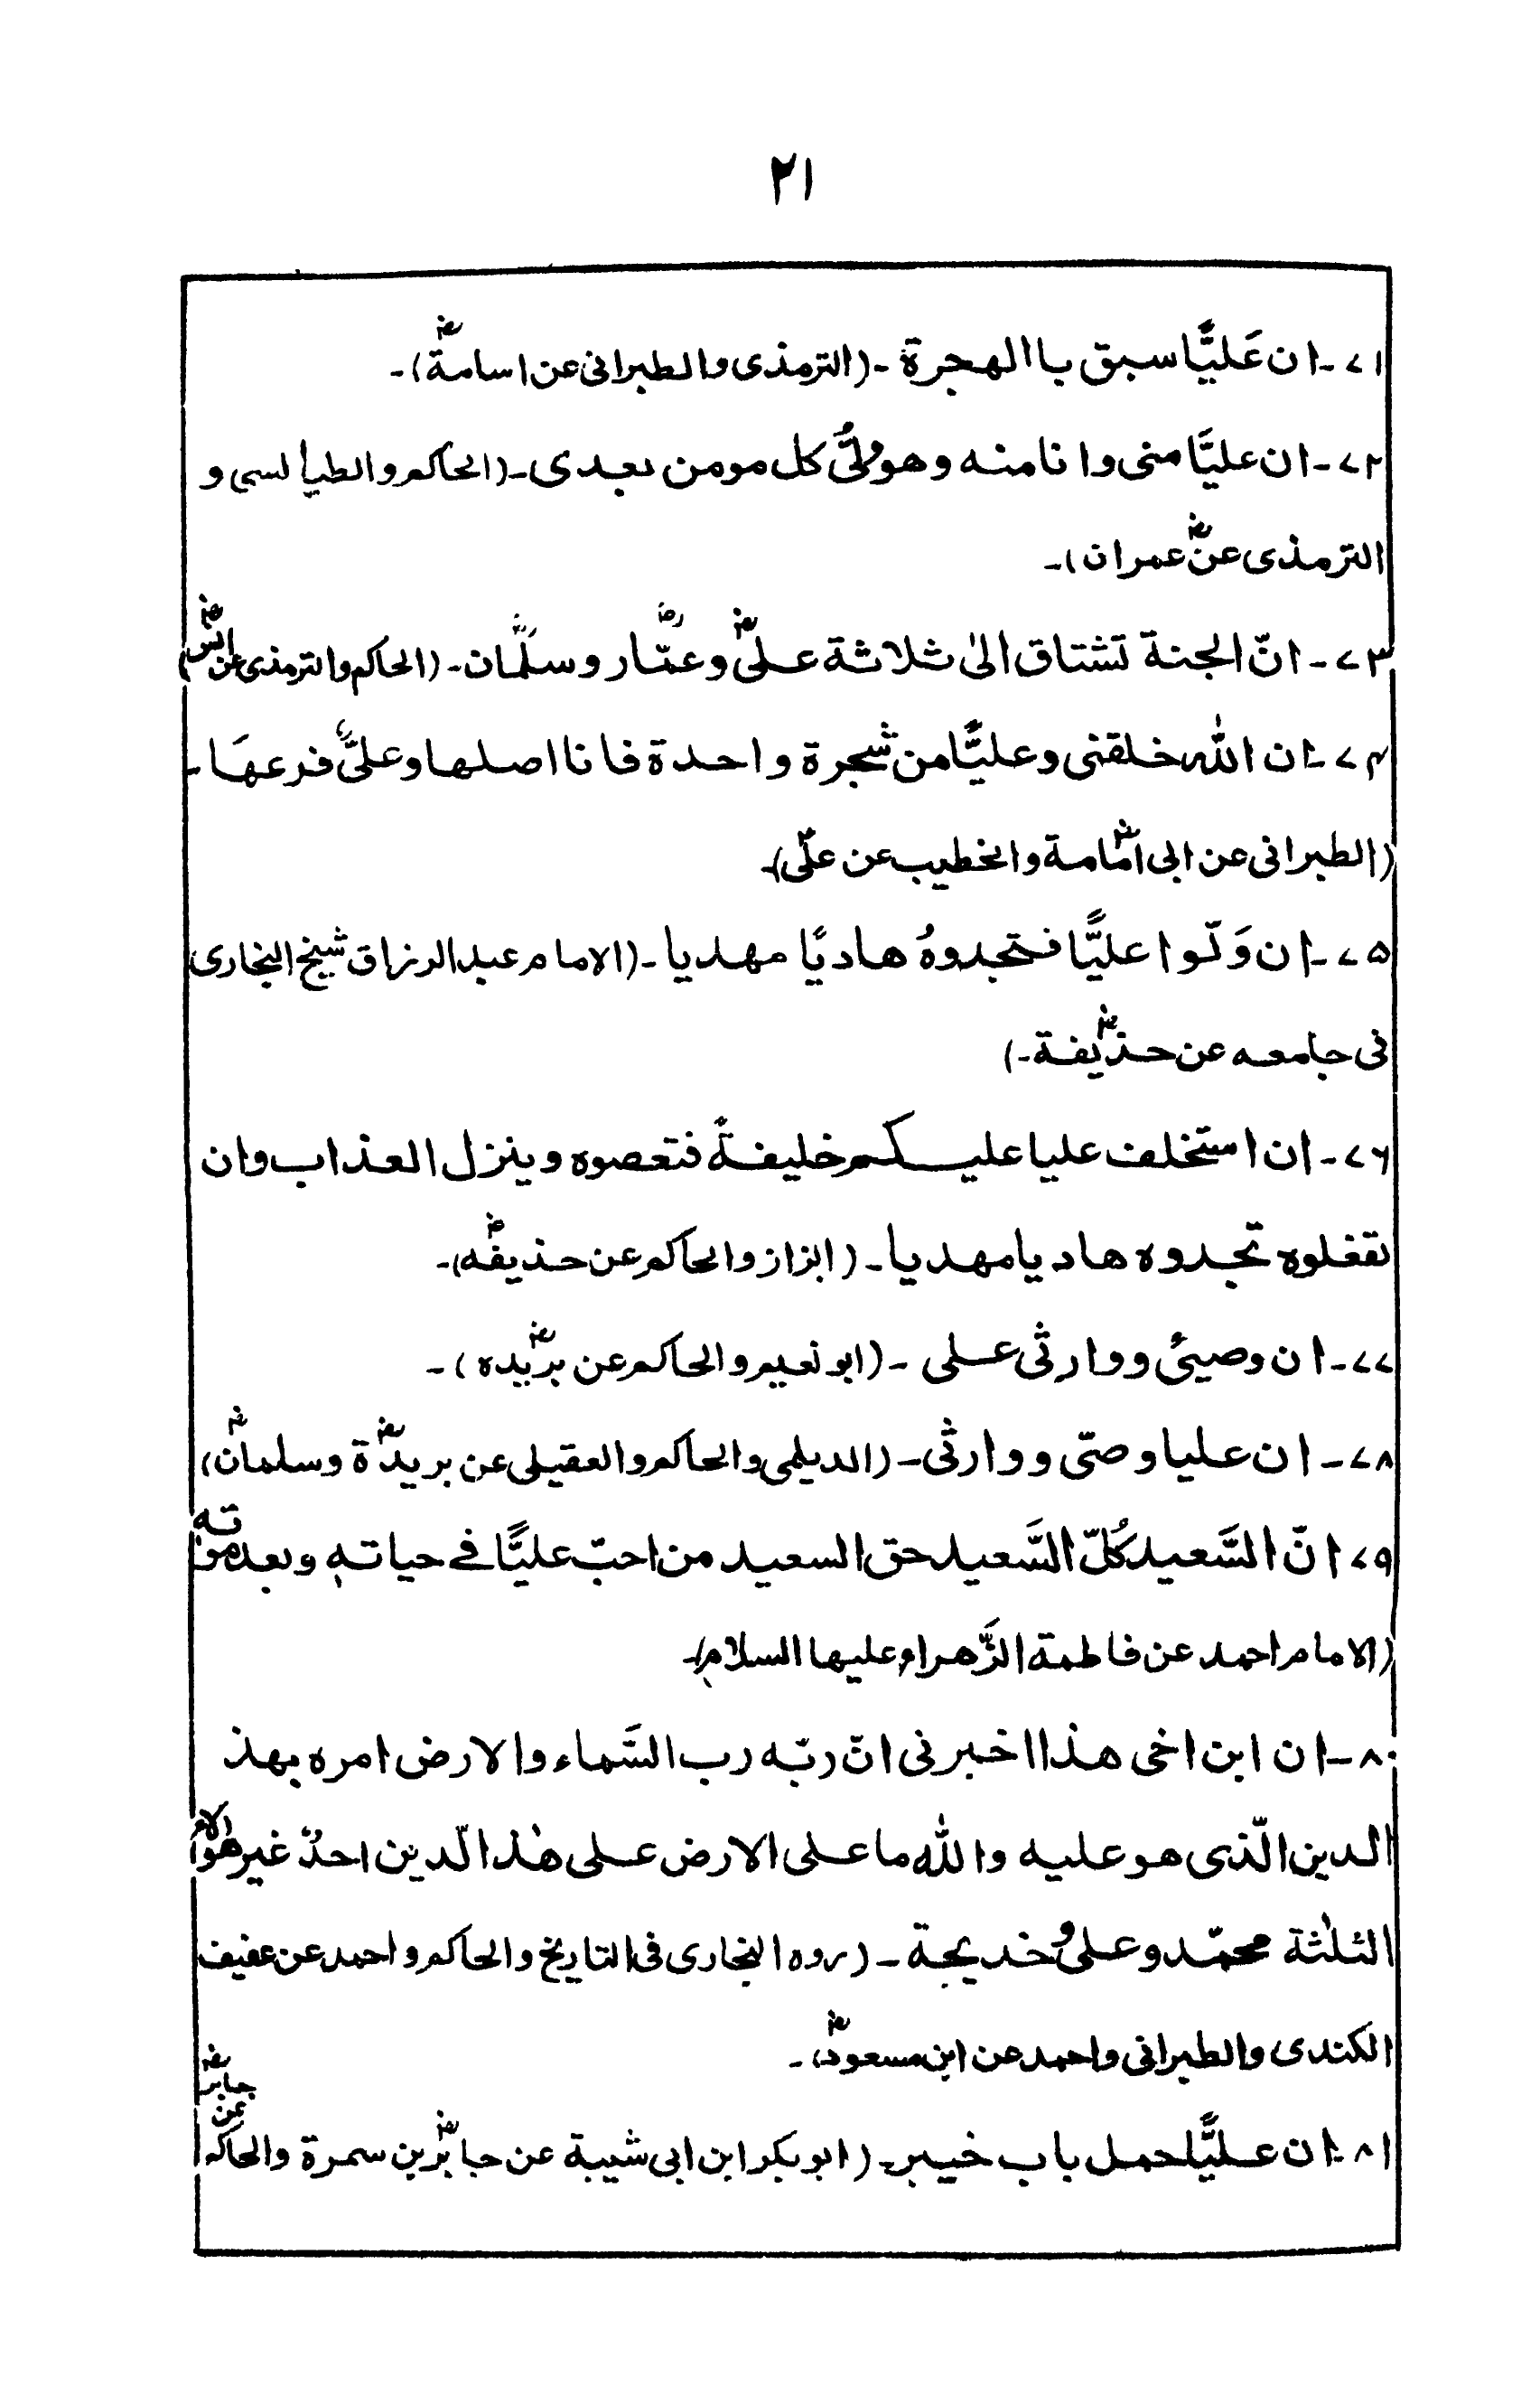 ۲۱
۷۱۔ ان عَلیًّا سبق باالهجرة۔ (الترمذی والطبرانی عن اسامةؓ)۔
۷۲۔ ان علیَّا منی وانا منه وهو ولیُّ کل مومن بعدی۔ (الحاکم والطیالسی و
الترمذی عنؓ عمران)۔
۷۳۔ انّ الجنة تشتاق الیٰ ثلاثة علیؓ وعمّارؓ وسلمانؓ۔ (الحاکم والترمذی عن انسؓ)
۷۴۔ ان اللّٰه خلقنی وعلیًّا من شجرة واحدة فانا اصلها وعلیٌّ فرعهَا۔
(الطبرانی عن ابی امامةؓ والخطیب عن علیؓ)۔
۷۵۔ ان وَلّوا علیًّا فتجدوهُ هادیًا مهدیا۔ (الامام عبد الرزاق شیخ البخاری
فی جامعه عن حذیفةؓ۔)
۷۶۔ ان استخلف علیا علیکم خلیفةً فتعصوه وینزل العذاب وان
تفعلوه تجدوه هادیا مهدیا۔ (ابزاز والحاکم عن حذیفهؓ)۔
۷۷۔ ان وصیئ ووارثی علی۔ (ابو نعیم والحاکم عن بریدهؓ)۔
۷۸۔ ان علیا وصیّ ووارثی۔ (الدیلمی والحاکم والعقیلی عن بریدةؓ وسلمانؓ)
۷۹ انّ السَّعید کُلّ السَّعید حق السعید من احبّ علیًّا فے حیاتهٖ وبعد موته
(الامام احمد عن فاطمة الزَّهراء علیها السلام)۔
۸۰۔ ان ابن اخی هذا اخبرنی انّ ربّه رب السَّماء والارض امره بهذ
الدین الّذی هو علیه واللّٰه ما علی الارض علی هٰذا الّدین احدٌ غیر هولاء
الثلٰثة محمّد وعلیؓ وخدیجة۔ (روه البخاری فی التاریخ والحاکم واحمد عن عفیف
الکندی والطبرانی واحمد عن ابن مسعودؓ)۔
۸۱۔ ان علیًّا حمل باب خیبر۔ (ابوبکر ابن ابی شیبة عن جابرؓ بن سمرة والحاکم عن جابرؓ